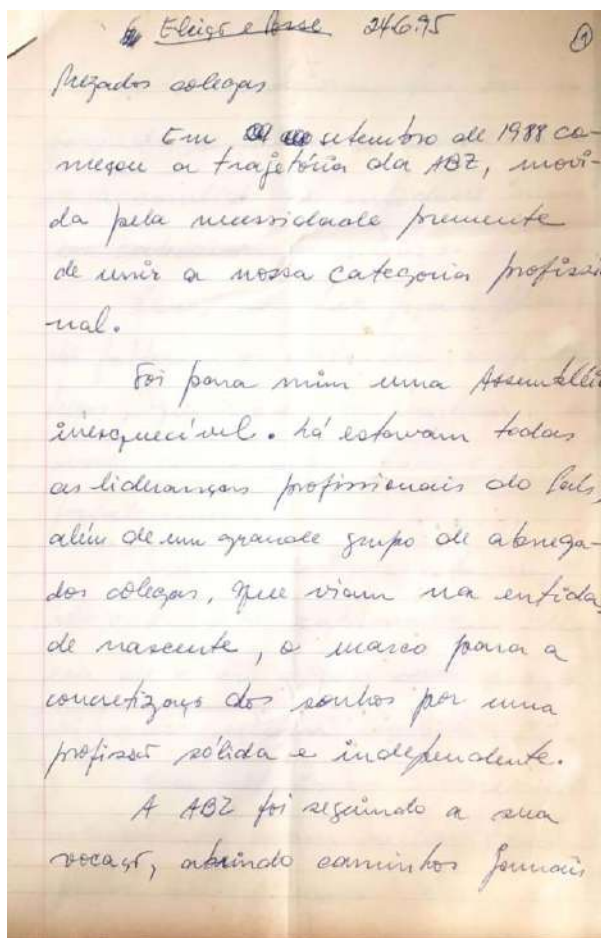 Eleição e Posse 24.6.95
1
Prezados colegas
Em setembro de 1988 co-
meçou a trajetória da ABZ, movi-
da pela necessidade premente
de unir a nossa categoria profissio
nal.
Foi para mim uma Assembléia
inesquecível. Lá estavam todas
as lideranças profissionais do País,
além de um grande grupo de abnega-
dos colegas, que viam na entida
de nascente, o marco para a
concretização dos sonhos por uma
profissão sólida e independente.
A ABZ foi seguindo a sua
vocação, abrindo caminhos jamais